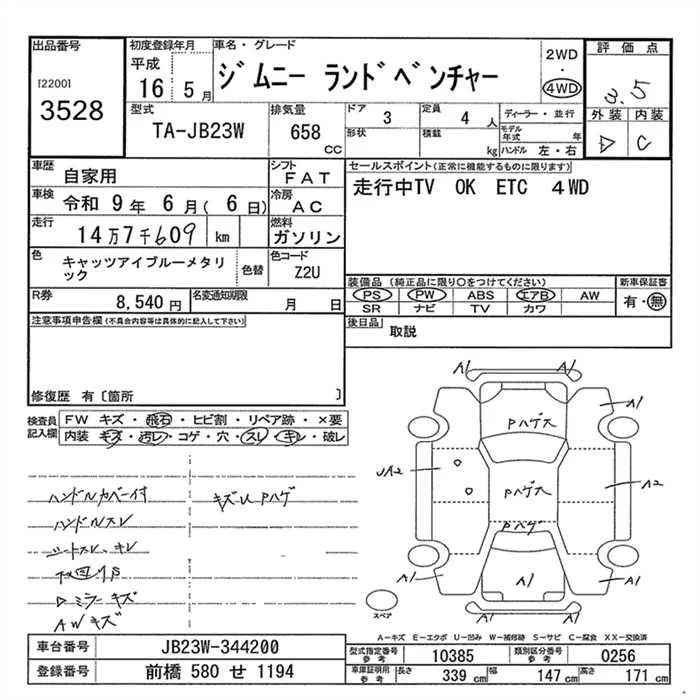 出品番号
[2200]
3528
初度登録年月
平成
16 5月
車名・グレード
ジムニー ランドベンチャー
2WD
・
4WD
評価点
3.5
外装 内装
D C
型式
TA-JB23W
排気量
658
CC
ドア
3
定員
4 人
形状
積載
kg
ディーラー・並行
モデル年式 年
ハンドル 左・右
車歴
自家用
シフト
FAT
車検
令和 9年 6月( 6日)
冷房
AC
走行
14万7千609 km
燃料
ガソリン
色
キャッツアイブルーメタリック
色替
色コード
Z2U
R券
8,540 円
名変通知期限
月 日
セールスポイント(正常に機能するものに限ります)
走行中TV OK ETC 4WD
装備品 (純正品に限り○をつけてください)
PS PW ABS エアB AW
SR ナビ TV カワ
新車保証書
有・無
後日品
取説
注意事項申告欄(不具合内容等は具体的に記入して下さい)
修復歴 有〔箇所 〕
検査員記入欄
FW キズ・飛石・ヒビ割・リペア跡・×要
内装・キズ・汚レ・コゲ・穴・スレ・キレ・破レ
ハンドルカバー付 キズUPハゲ
ハンドルスレ
シートスレ、キレ
D ミラーキズ
AWキズ
A1 A1
A1 A1
Pハゲス
UA2 A2
Pハゲス
Pハゲ
A1 A1 A1
A1 A1
スペア
A-キズ E-エクボ U-凹み W-補修跡 S-サビ C-腐食 XX-交換済
車台番号
JB23W-344200
登録番号
前橋 580 せ 1194
型式指定番号 参考
10385
類別区分番号 参考
0256
車庫証明用 参考
長さ 339 cm 幅 147 cm 高さ 171 cm